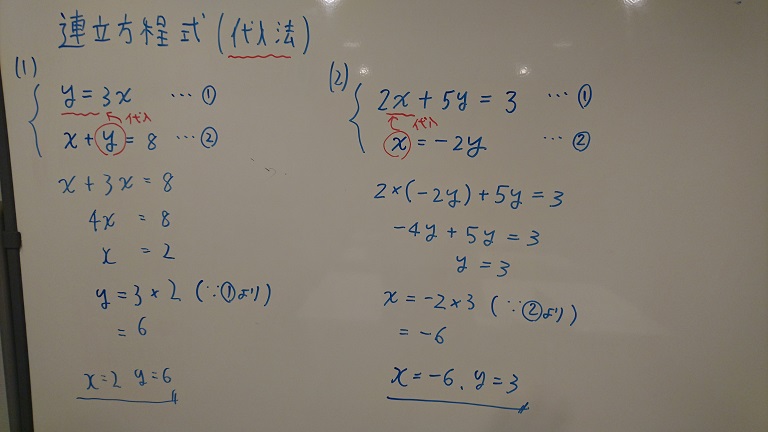 連立方程式(代入法)
(1)
y = 3x … ①
代入
x + y = 8 … ②
x + 3x = 8
4x = 8
x = 2
y = 3 × 2 (∵①より)
= 6
x = 2 y = 6
(2)
2x + 5y = 3 … ①
代入
x = -2y … ②
2×(-2y) + 5y = 3
-4y + 5y = 3
y = 3
x = -2×3 (∵②より)
= -6
x = -6. y = 3